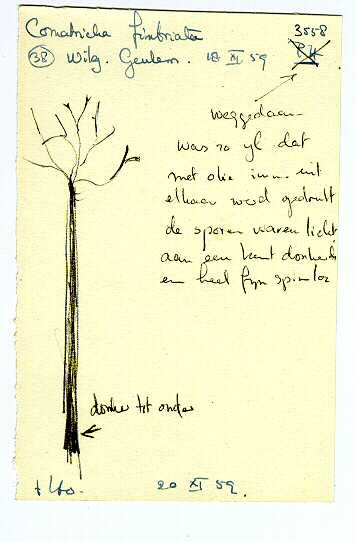 Comatricha fimbriata 3558
38 Wilg. Geulem. 18 XI 59
weggedaan
was zo yl dat
met olie imm. uit
elkaar werd gedrukt
de sporen waren licht
aan een kant donkerder
en heel fyn
donker tot onder
20 XI 59.